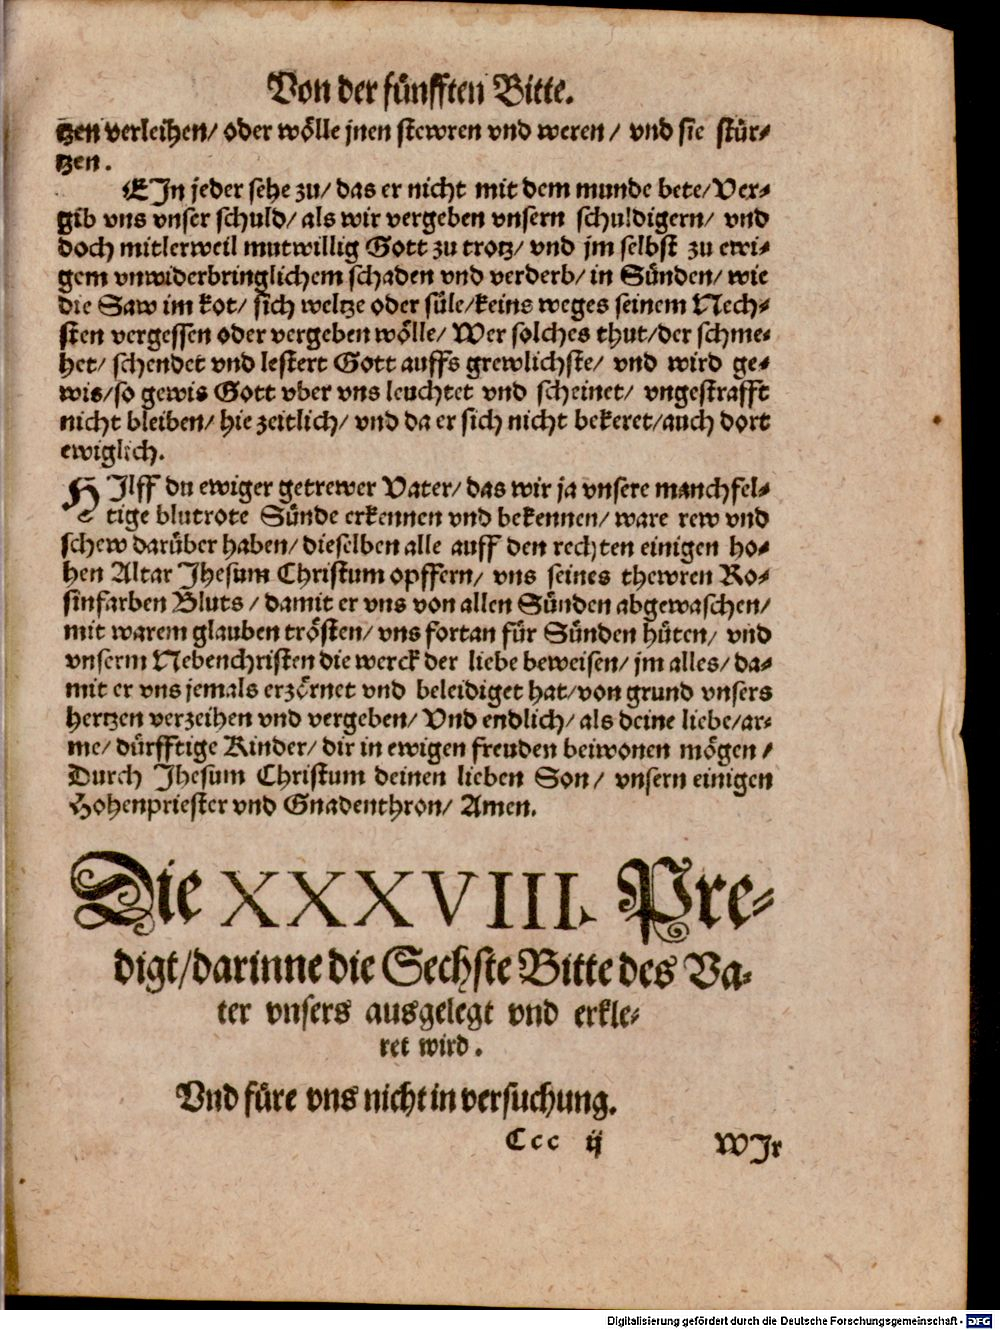 Von der fünfften Bitte.
tzen verleihen/ oder wölle jnen stewren vnd weren/ vnd sie stür-
tzen.
EIn jeder sehe zu/ das er nicht mit dem munde bete/ Ver-
gib vns vnser schuld/ als wir vergeben vnsern schuldigern/ vnd
doch mitlerweil mutwillig Gott zu trotz/ vnd jm selbst zu ewi-
gem vnwiderbringlichem schaden vnd verderb/ in Sünden/ wie
die Saw im kot/ sich weltze oder süle/ keins weges seinem Nech-
sten vergessen oder vergeben wölle/ Wer solches thut/ der schme-
het/ schendet vnd lestert Gott auffs grewlichste/ vnd wird ge-
wis/ so gewis Gott vber vns leuchtet vnd scheinet/ vngestrafft
nicht bleiben/ hie zeitlich/ vnd da er sich nicht bekeret/ auch dort
ewiglich.
HIlff du ewiger getrewer Vater/ das wir ja vnsere manchfel-
tige blutrote Sünde erkennen vnd bekennen/ ware rew vnd
schew darüber haben/ dieselben alle auff den rechten einigen ho-
hen Altar Jhesum Christum opffern/ vns seines thewren Ro-
sinfarben Bluts/ damit er vns von allen Sünden abgewaschen/
mit warem glauben trösten/ vns fortan für Sünden hüten/ vnd
vnserm Nebenchristen die werck der liebe beweisen/ jm alles/ da-
mit er vns jemals erzörnet vnd beleidiget hat/ von grund vnsers
hertzen verzeihen vnd vergeben/ Vnd endlich/ als deine liebe/ ar-
me/ dürfftige Kinder/ dir in ewigen freuden beiwonen mögen/
Durch Jhesum Christum deinen lieben Son/ vnsern einigen
Hohenpriester vnd Gnadenthron/ Amen.
Die XXXVIII. Pre-
digt/ darinne die Sechste Bitte des Va-
ter vnsers ausgelegt vnd erkle-
ret wird.
Vnd füre vns nicht in versuchung.
Ccc ij WJr
Digitalisierung gefördert durch die Deutsche Forschungsgemeinschaft - DFG